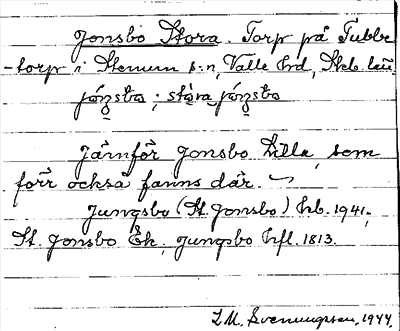 Jonsbo Stora. Torp på Tubbe-
torp i Stenum s:n, Valle hd, Skb. län
Jämför Jonsbo Lilla, som
förr också fanns där.
Jungsbo (St. Jonsbo) Hrb. 1941,
St. Jonsbo Ek., Jungsbo Hfl. 1813.
L.M. Svenungsson, 1944.